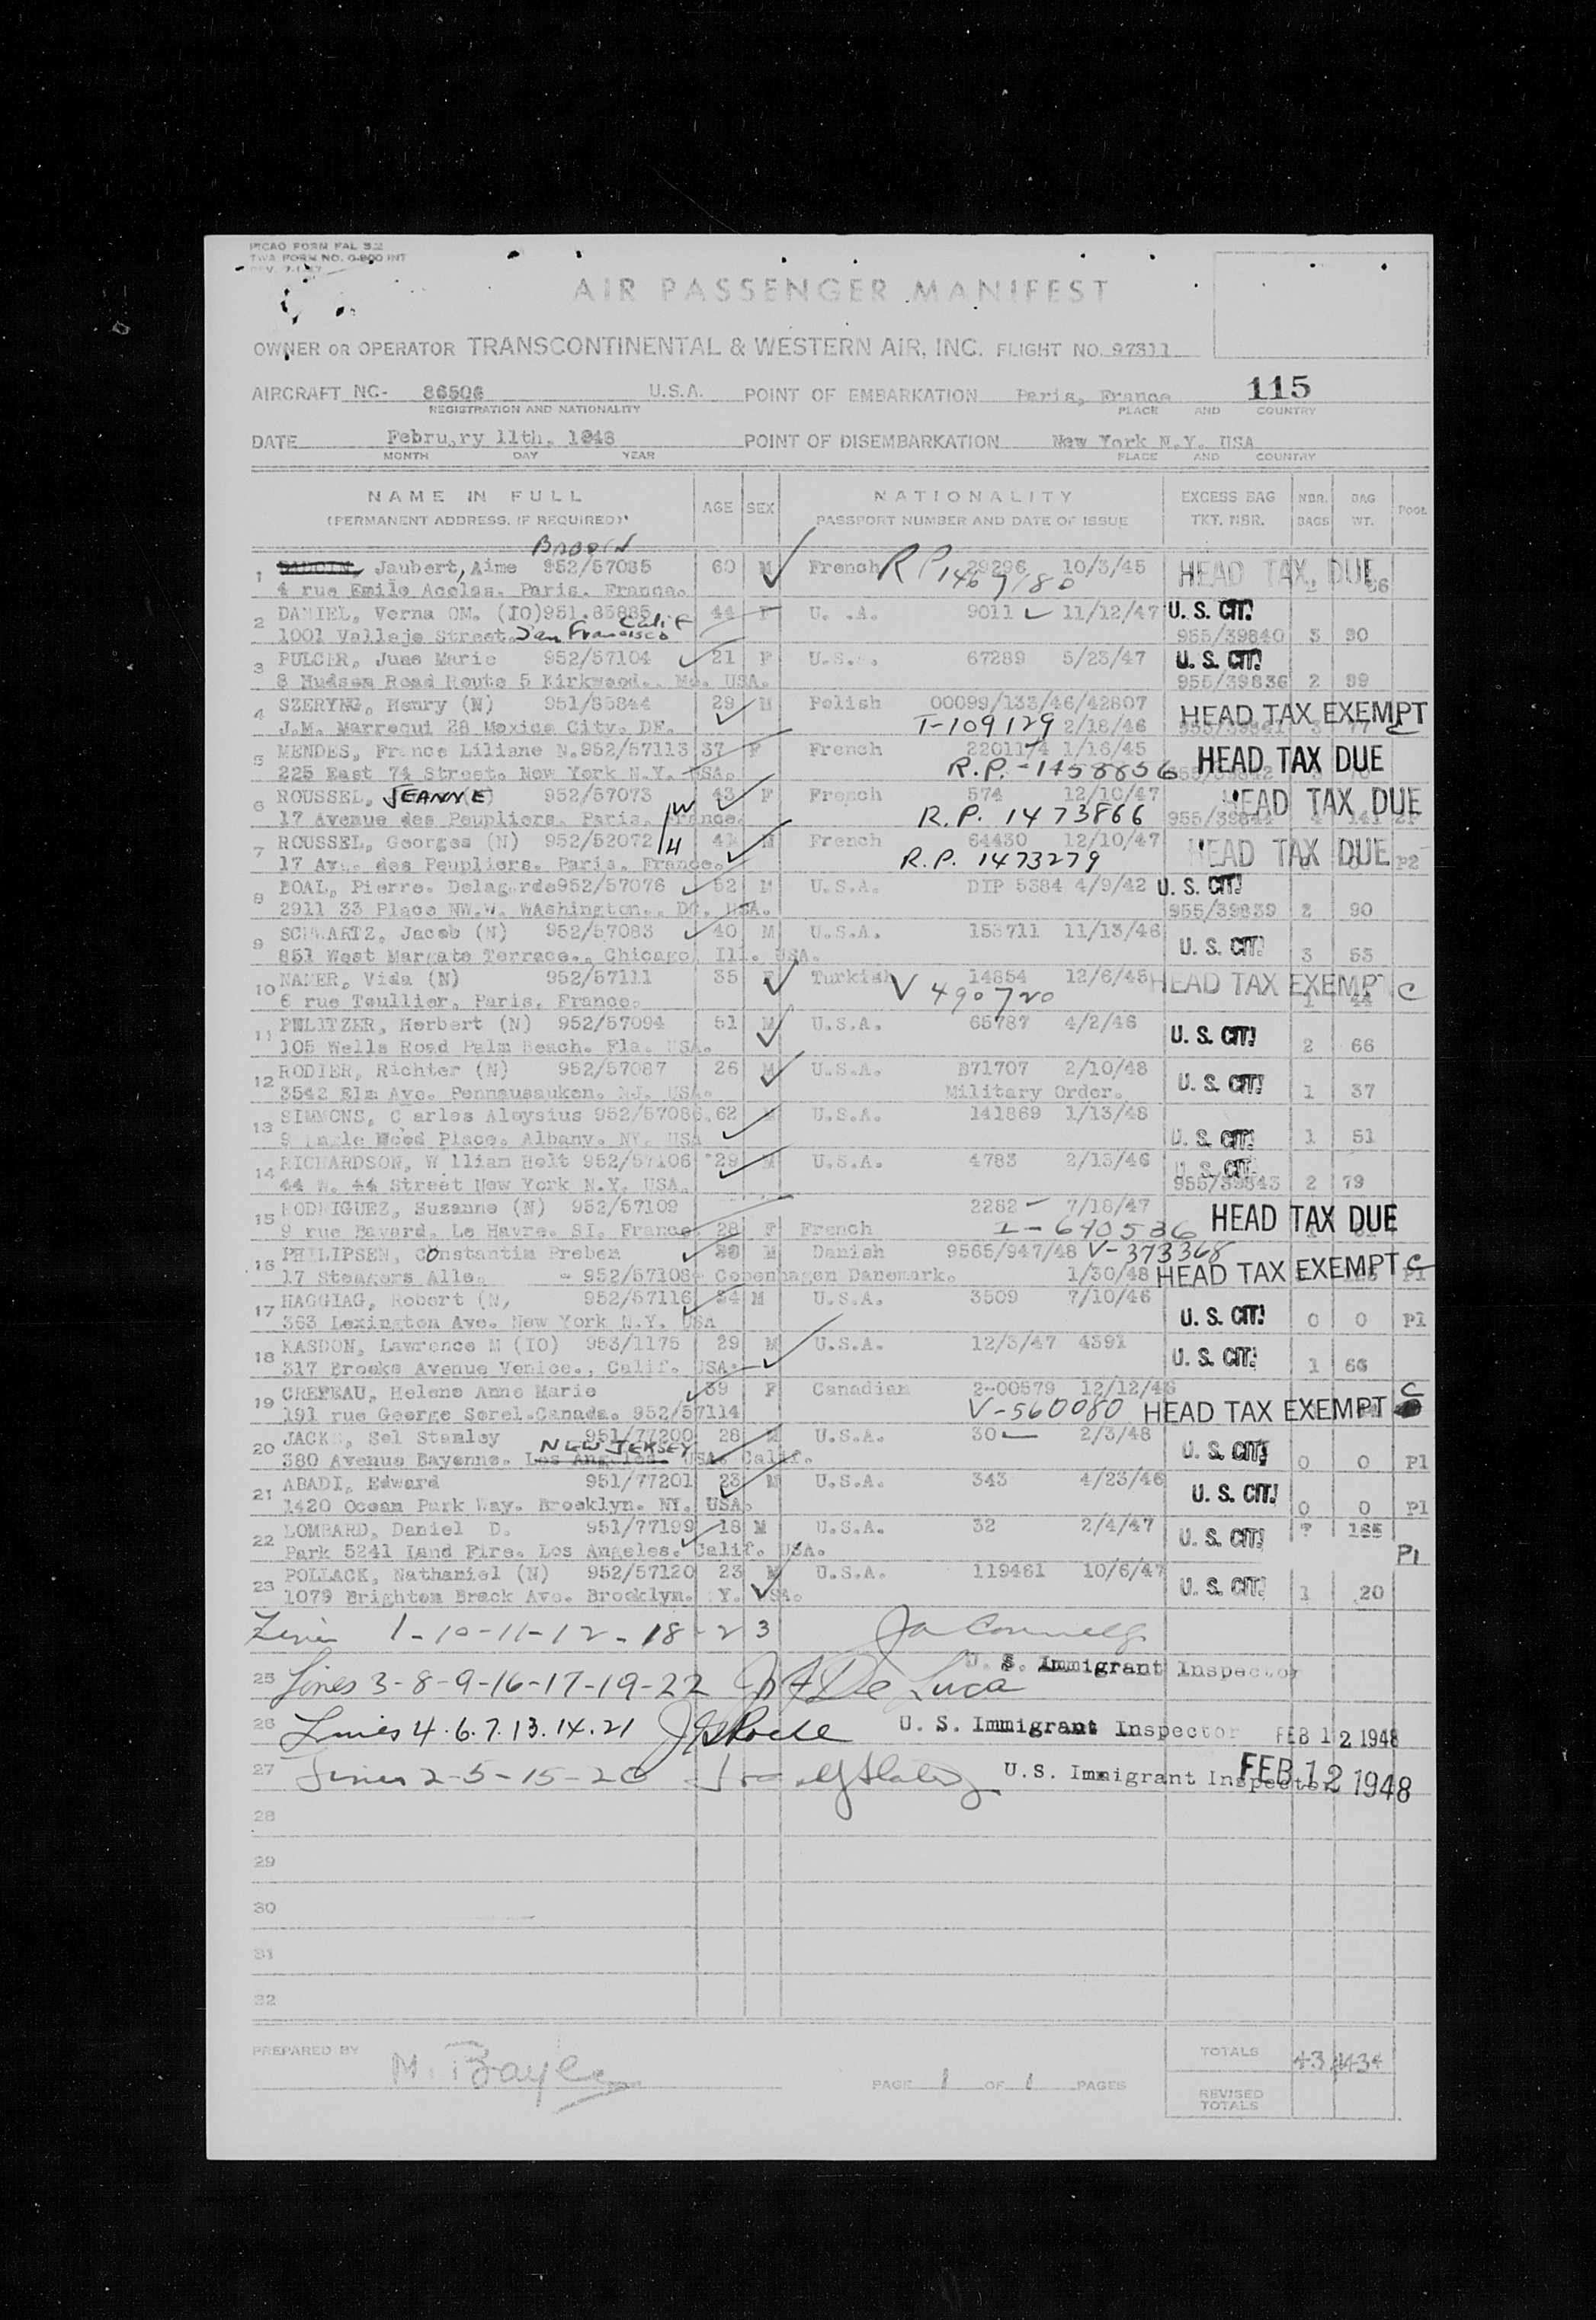 PICAO FORM FAL 5.2
TWA FORM NO. O-800 INT
REV. 7-1-47
AIR PASSENGER MANIFEST
OWNER OR OPERATOR TRANSCONTINENTAL & WESTERN AIR, INC. FLIGHT NO. 97311
AIRCRAFT NC- 86506 U.S.A. POINT OF EMBARKATION Paris, France 115
REGISTRATION AND NATIONALITY PLACE AND COUNTRY
DATE February 11th. 1948 POINT OF DISEMBARKATION New York N.Y. USA
MONTH DAY YEAR PLACE AND COUNTRY
NAME IN FULL AGE SEX NATIONALITY EXCESS BAG NBR. BAG POOL
(PERMANENT ADDRESS, IF REQUIRED) PASSPORT NUMBER AND DATE OF ISSUE TKT. NBR. BAGS WT.
BADOIN
1 Jaubert, Aime 952/57085 60 M French 29296 10/3/45 HEAD TAX DUE
4 rue Emile Acolas. Paris. France. RP 1469180
2 DANIEL, Verna OM. (IO)951.85885 44 F U. .A. 9011 11/12/47 U. S. CIT.
1001 Vallejo Street. San Francisco Calif 955/39840 3 90
3 PULCER, June Marie 952/57104 21 F U.S. 67289 5/23/47 U. S. CIT.
8 Hudson Road Route 5 Kirkwood., Mo. USA. 955/39836 2 89
4 SZERYNG, Henry (N) 951/85844 29 M Polish 00099/133/46/42807 HEAD TAX EXEMPT
J.M. Marroqui 28 Mexico City. DF. T-109129 2/18/46 955/39841 3 77 C
5 MENDES, France Liliane N.952/57113 37 F French 2201174 1/16/45 HEAD TAX DUE
225 East 74 Street. New York N.Y. USA. R.P.-1458856
6 ROUSSEL, JEANNE 952/57073 43 F French 574 12/10/47 HEAD TAX DUE
17 Avenue des Peupliers. Paris. France. W R.P. 1473866 141
7 ROUSSEL, Georges (N) 952/52072 H M French 64430 12/10/47 HEAD TAX DUE
17 Ave. des Peupliers. Paris. France. R.P. 1473279 P2
8 BOAL, Pierre. Delagarde952/57076 52 M U.S.A. DIP 5384 4/9/42 U. S. CIT.
2911 33 Place NW.W. WAshington., DC. USA. 955/39839 2 90
9 SCHWARTZ, Jacob (N) 952/57083 40 M U.S.A. 153711 11/13/46
851 West Margate Terrace., Chicago Ill. USA. U. S. CIT. 3 53
10 NAMER, Vida (N) 952/57111 35 F Turkish 14854 12/6/45 HEAD TAX EXEMPT
6 rue Toullier. Paris. France. V 490720 1 44 C
11 PELITZER, Herbert (N) 952/57094 51 M U.S.A. 65787 4/2/46
105 Wells Road Palm Beach. Fla. USA. U. S. CIT. 2 66
12 RODIER, Richter (N) 952/57087 26 M U.S.A. B71707 2/10/48
3542 Elm Ave. Pennausauken. NJ. USA. Military Order. U. S. CIT. 1 37
13 SIMMONS, C arles Aloysius 952/57086. 62 M U.S.A. 141869 1/13/48
9 Eagle Wood Place. Albany. NY. USA U. S. CIT. 1 51
14 RICHARDSON, W lliam Holt 952/57106 29 M U.S.A. 4783 2/13/46 U. S. CIT.
44 W. 44 Street New York N.Y. USA. 955/39843 2 79
15 RODRIGUEZ, Suzanne (N) 952/57109 2282 7/18/47 HEAD TAX DUE
9 rue Bayard. Le Havre. SI. France 28 F French I-640536
16 PHILIPSEN, Constantin Preben M Danish 9565/947/48 V-373368
17 Steagers Alle. - 952/57108 Copenhagen Danemark. 1/30/48 HEAD TAX EXEMPT C P1
17 HAGGIAG, Robert (N, 952/57116 34 M U.S.A. 3509 7/10/46
363 Lexington Ave. New York N.Y. USA U. S. CIT. 0 0 P1
18 KASDON, Lawrence M (IO) 953/1175 29 M U.S.A. 12/3/47 4391
317 Brooks Avenue Venice., Calif. USA. U. S. CIT. 1 66
19 CREPEAU, Helene Anne Marie 39 F Canadian 2-00579 12/12/46 C
191 rue George Sorel.Canada. 952/57114 V-560080 HEAD TAX EXEMPT
20 JACKS, Sol Stanley 951/77200 28 M U.S.A. 30 2/3/48
380 Avenue Bayonne. Los Angeles. NEW JERSEY USA. Calif. U. S. CIT. 0 0 P1
21 ABADI, Edward 951/77201 23 M U.S.A. 343 4/23/46
1420 Ocean Park Way. Brooklyn. NY. USA. U. S. CIT. 0 0 P1
22 LOMBARD, Daniel D. 951/77199 18 M U.S.A. 32 2/4/47 U. S. CIT.
Park 5241 Land Fire. Los Angeles. Calif. USA. P1
23 POLLACK, Nathaniel (N) 952/57120 23 M U.S.A. 119461 10/6/47
1079 Brighton Brack Ave. Brooklyn. Y. USA. U. S. CIT. 1 20
Lines 1-10-11-12-18-23
U. S. Immigrant Inspector
25 Lines 3-8-9-16-17-19-22 De Luca
26 Lines 4.6.7.13.14.21 U. S. Immigrant Inspector FEB 12 1948
27 Lines 2-5-15-20 U.S. Immigrant Inspector FEB 12 1948
28
29
30
31
32
PREPARED BY M. Bayle TOTALS 43 1434
PAGE 1 OF 1 PAGES
REVISED TOTALS